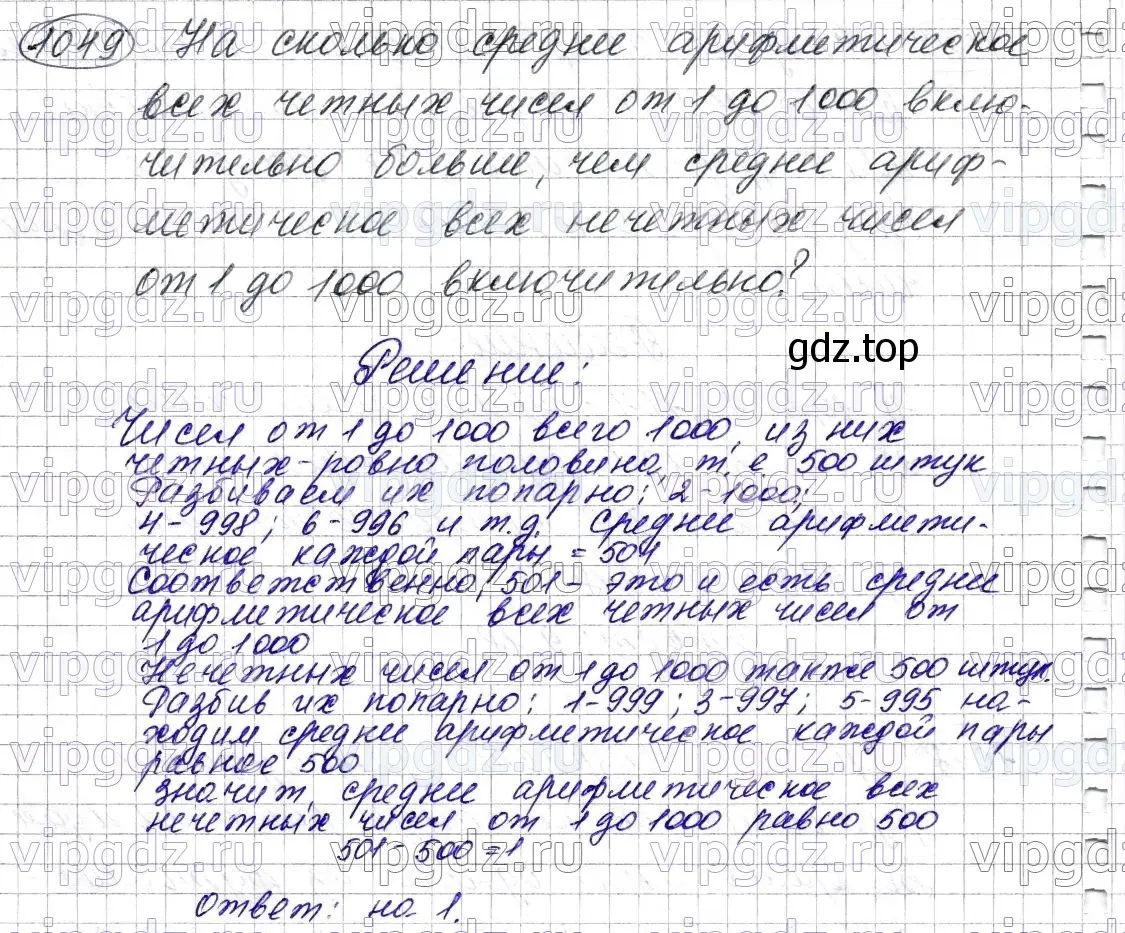 1049 На сколько среднее арифметическое
всех четных чисел от 1 до 1000 вклю-
чительно больше, чем среднее ариф-
метическое всех нечетных чисел
от 1 до 1000 включительно?
gdz.top
Решение:
Чисел от 1 до 1000 всего 1000, из них
четных - ровно половина, т. е 500 штук
Разбиваем их попарно: 2-1000;
4-998; 6-996 и т.д. Среднее арифмети-
ческое каждой пары = 501
Соответственно, 501 - это и есть среднее
арифметическое всех четных чисел от
1 до 1000
Нечетных чисел от 1 до 1000 также 500 штук.
Разбив их попарно: 1-999; 3-997; 5-995 на-
ходим среднее арифметическое каждой пары
равное 500
Значит, среднее арифметическое всех
нечетных чисел от 1 до 1000 равно 500
501 - 500 = 1
Ответ: на 1.
vipgdz.ru